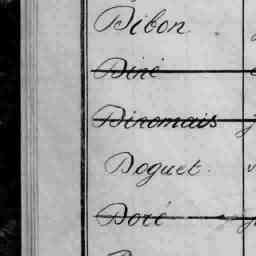 Dibon
Diné
Diromais
Doguet
Doré